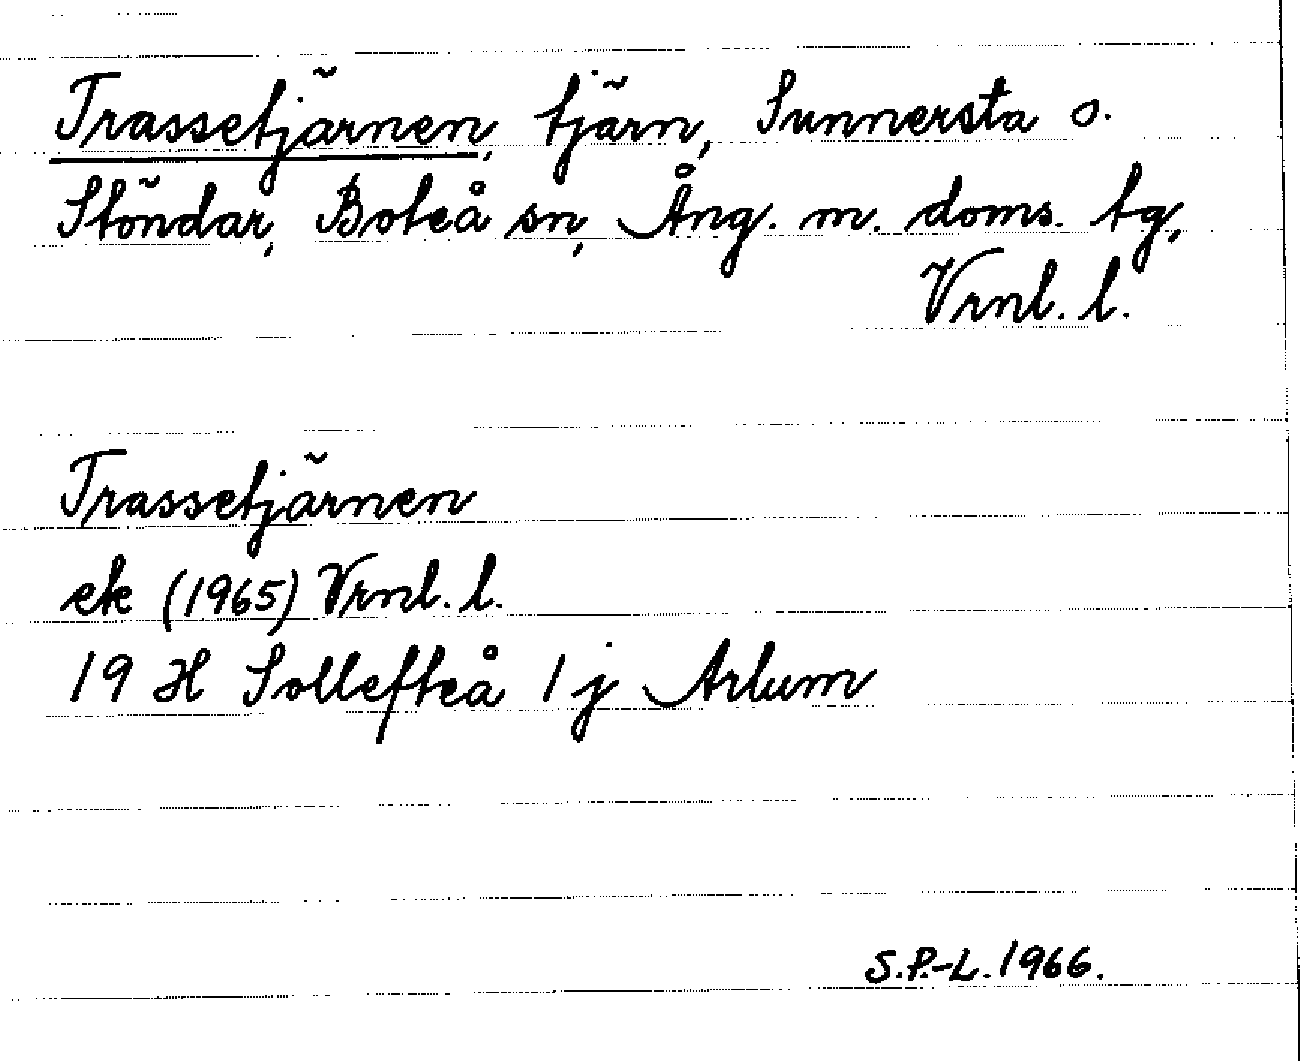 Trassetjärnen, tjärn, Sunnersta o.
Stöndar, Boteå sn, Ång. m. doms. tg,
Vrnl. l.
Trassetjärnen
ek (1965) Vrnl. l.
19 H Sollefteå 1 j Arlum
S.P.-L. 1966.